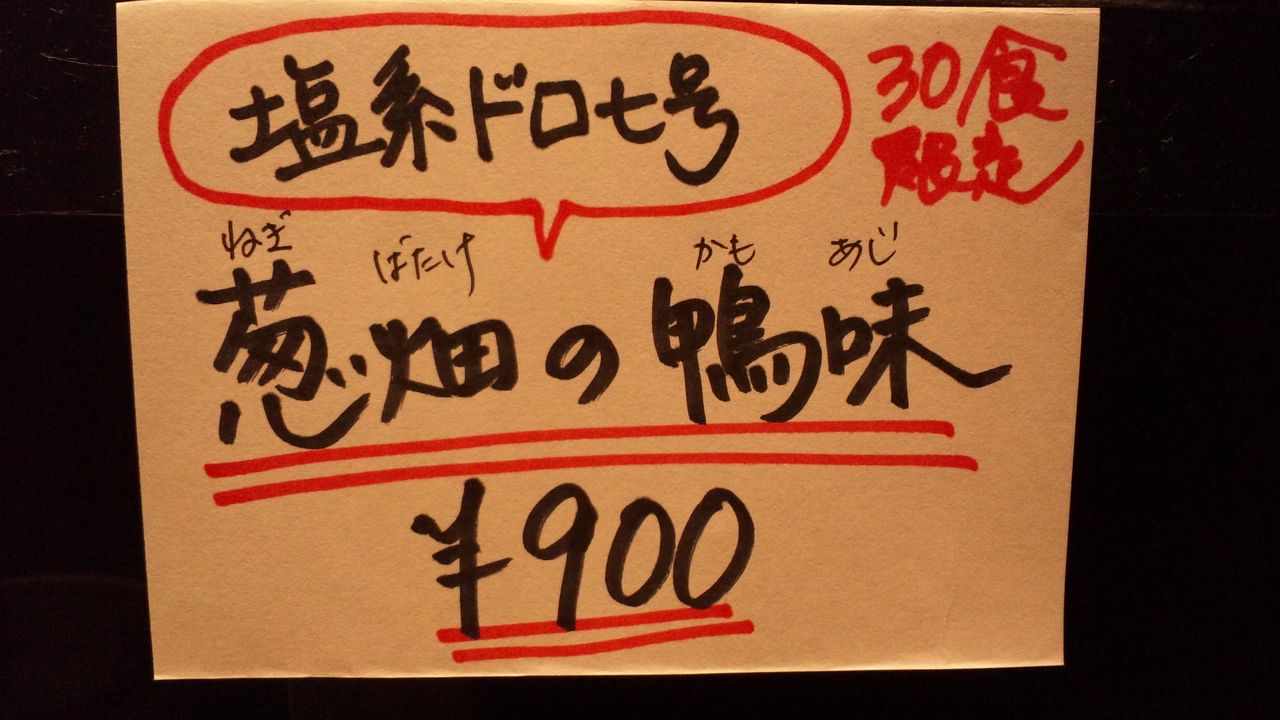 塩系ドロ七号
30食
限定
ねぎ ばたけ かも あじ
葱畑の鴨味
¥900